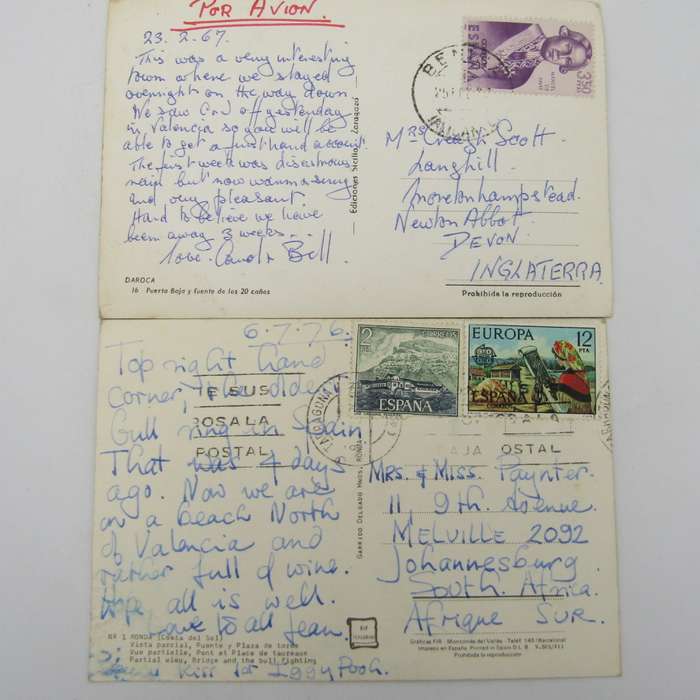 POR AVION.
23.2.67.
This was a very interesting
town where we stayed
overnight on the way down
We saw off yesterday
in Valencia so you will be
able to get a first hand account.
The first week was disastrous
rain but now warm & sunny
and very pleasant.
Hard to believe we have
been away 3 weeks...
love Bill
DAROCA
16 Puerta Baja y fuente de los 20 caños
Ediciones Sicilia, Zaragoza
350
Mrs Creagh Scott
Langhill
Moretonhampstead.
Newton Abbot
DEVON
INGLATERRA
Prohibida la reproducción
6.7.76.
Top right hand
corner, the oldest
bull ring in Spain
That was 4 days
ago. Now we are
on a beach North
of Valencia and
rather full of wine.
Hope all is well.
Love to all Jean.
kiss for Iggy Pooh.
NR 1 RONDA (Costa del Sol)
Vista parcial, Puente y Plaza de toros
Vue partielle, Pont et Place de taureaux
Partial view, Bridge and the bull fighting
GARRIDO DELGADO HNOS. RONDA
2 PTAS CORREOS
ESPAÑA
EUROPA 12
PTA
ESPAÑA
TARRAGONA
POSTAL
OSTAL
Mrs. & Miss. Paynter.
11, 9th Avenue.
MELVILLE 2092
Johannesburg
South Africa.
Afrique Sur.
Prohibida la reproducción